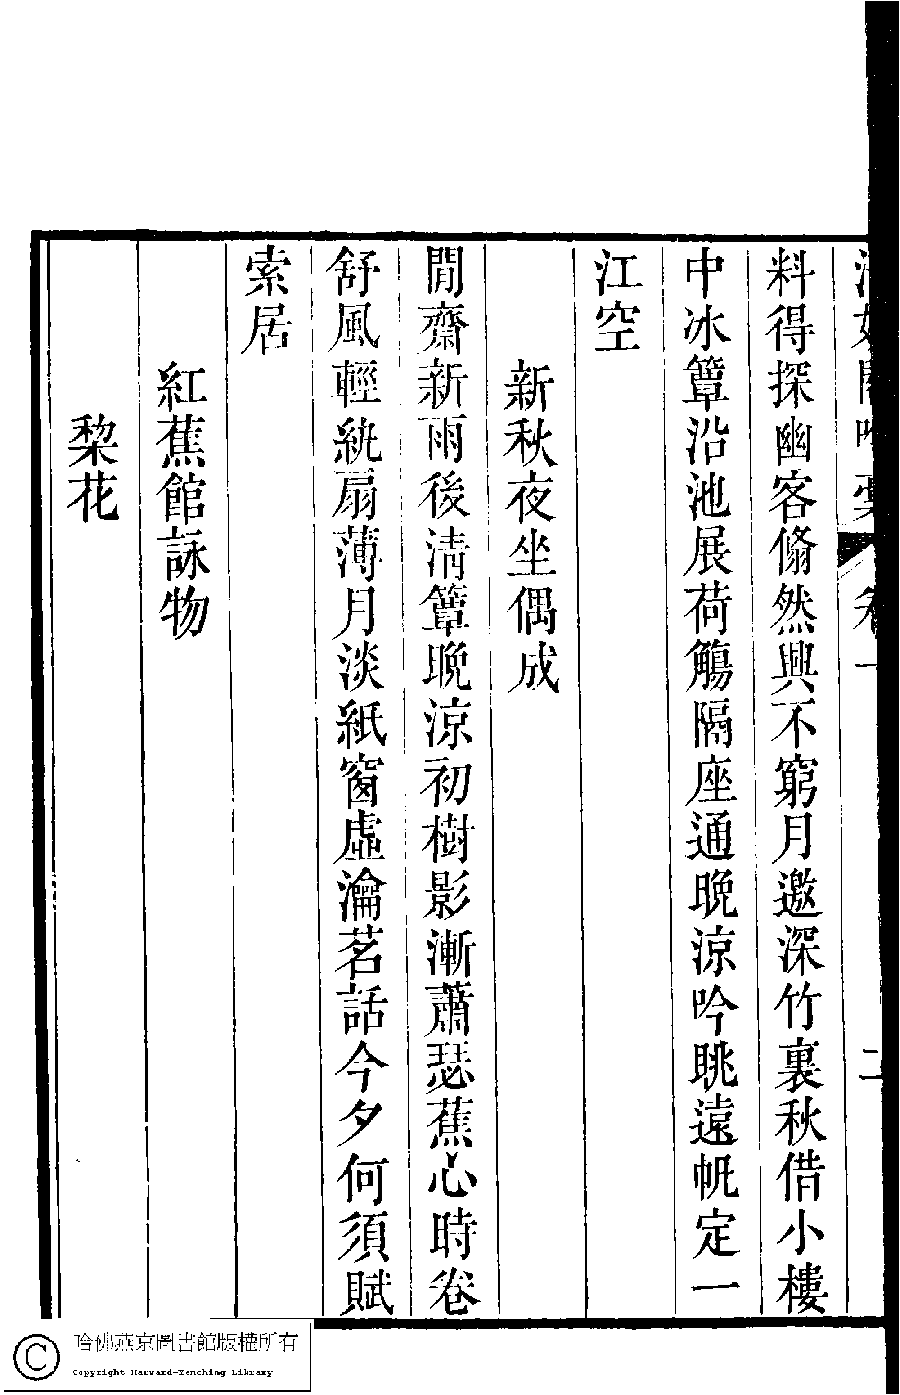 料得探幽客翛然興不窮月邀深竹裏秋借小樓
中冰簟沿池展荷觴隔座通晚涼吟眺遠帆定一
江空
新秋夜坐偶成
閒齋新雨後淸簟晚涼初樹影漸蕭瑟蕉心時卷
舒風輕紈扇薄月淡紙窗虛瀹茗話今夕何須賦
索居
紅蕉館詠物
棃花
哈佛燕京圖書館版權所有
Copyright Harvard-Yenching Library